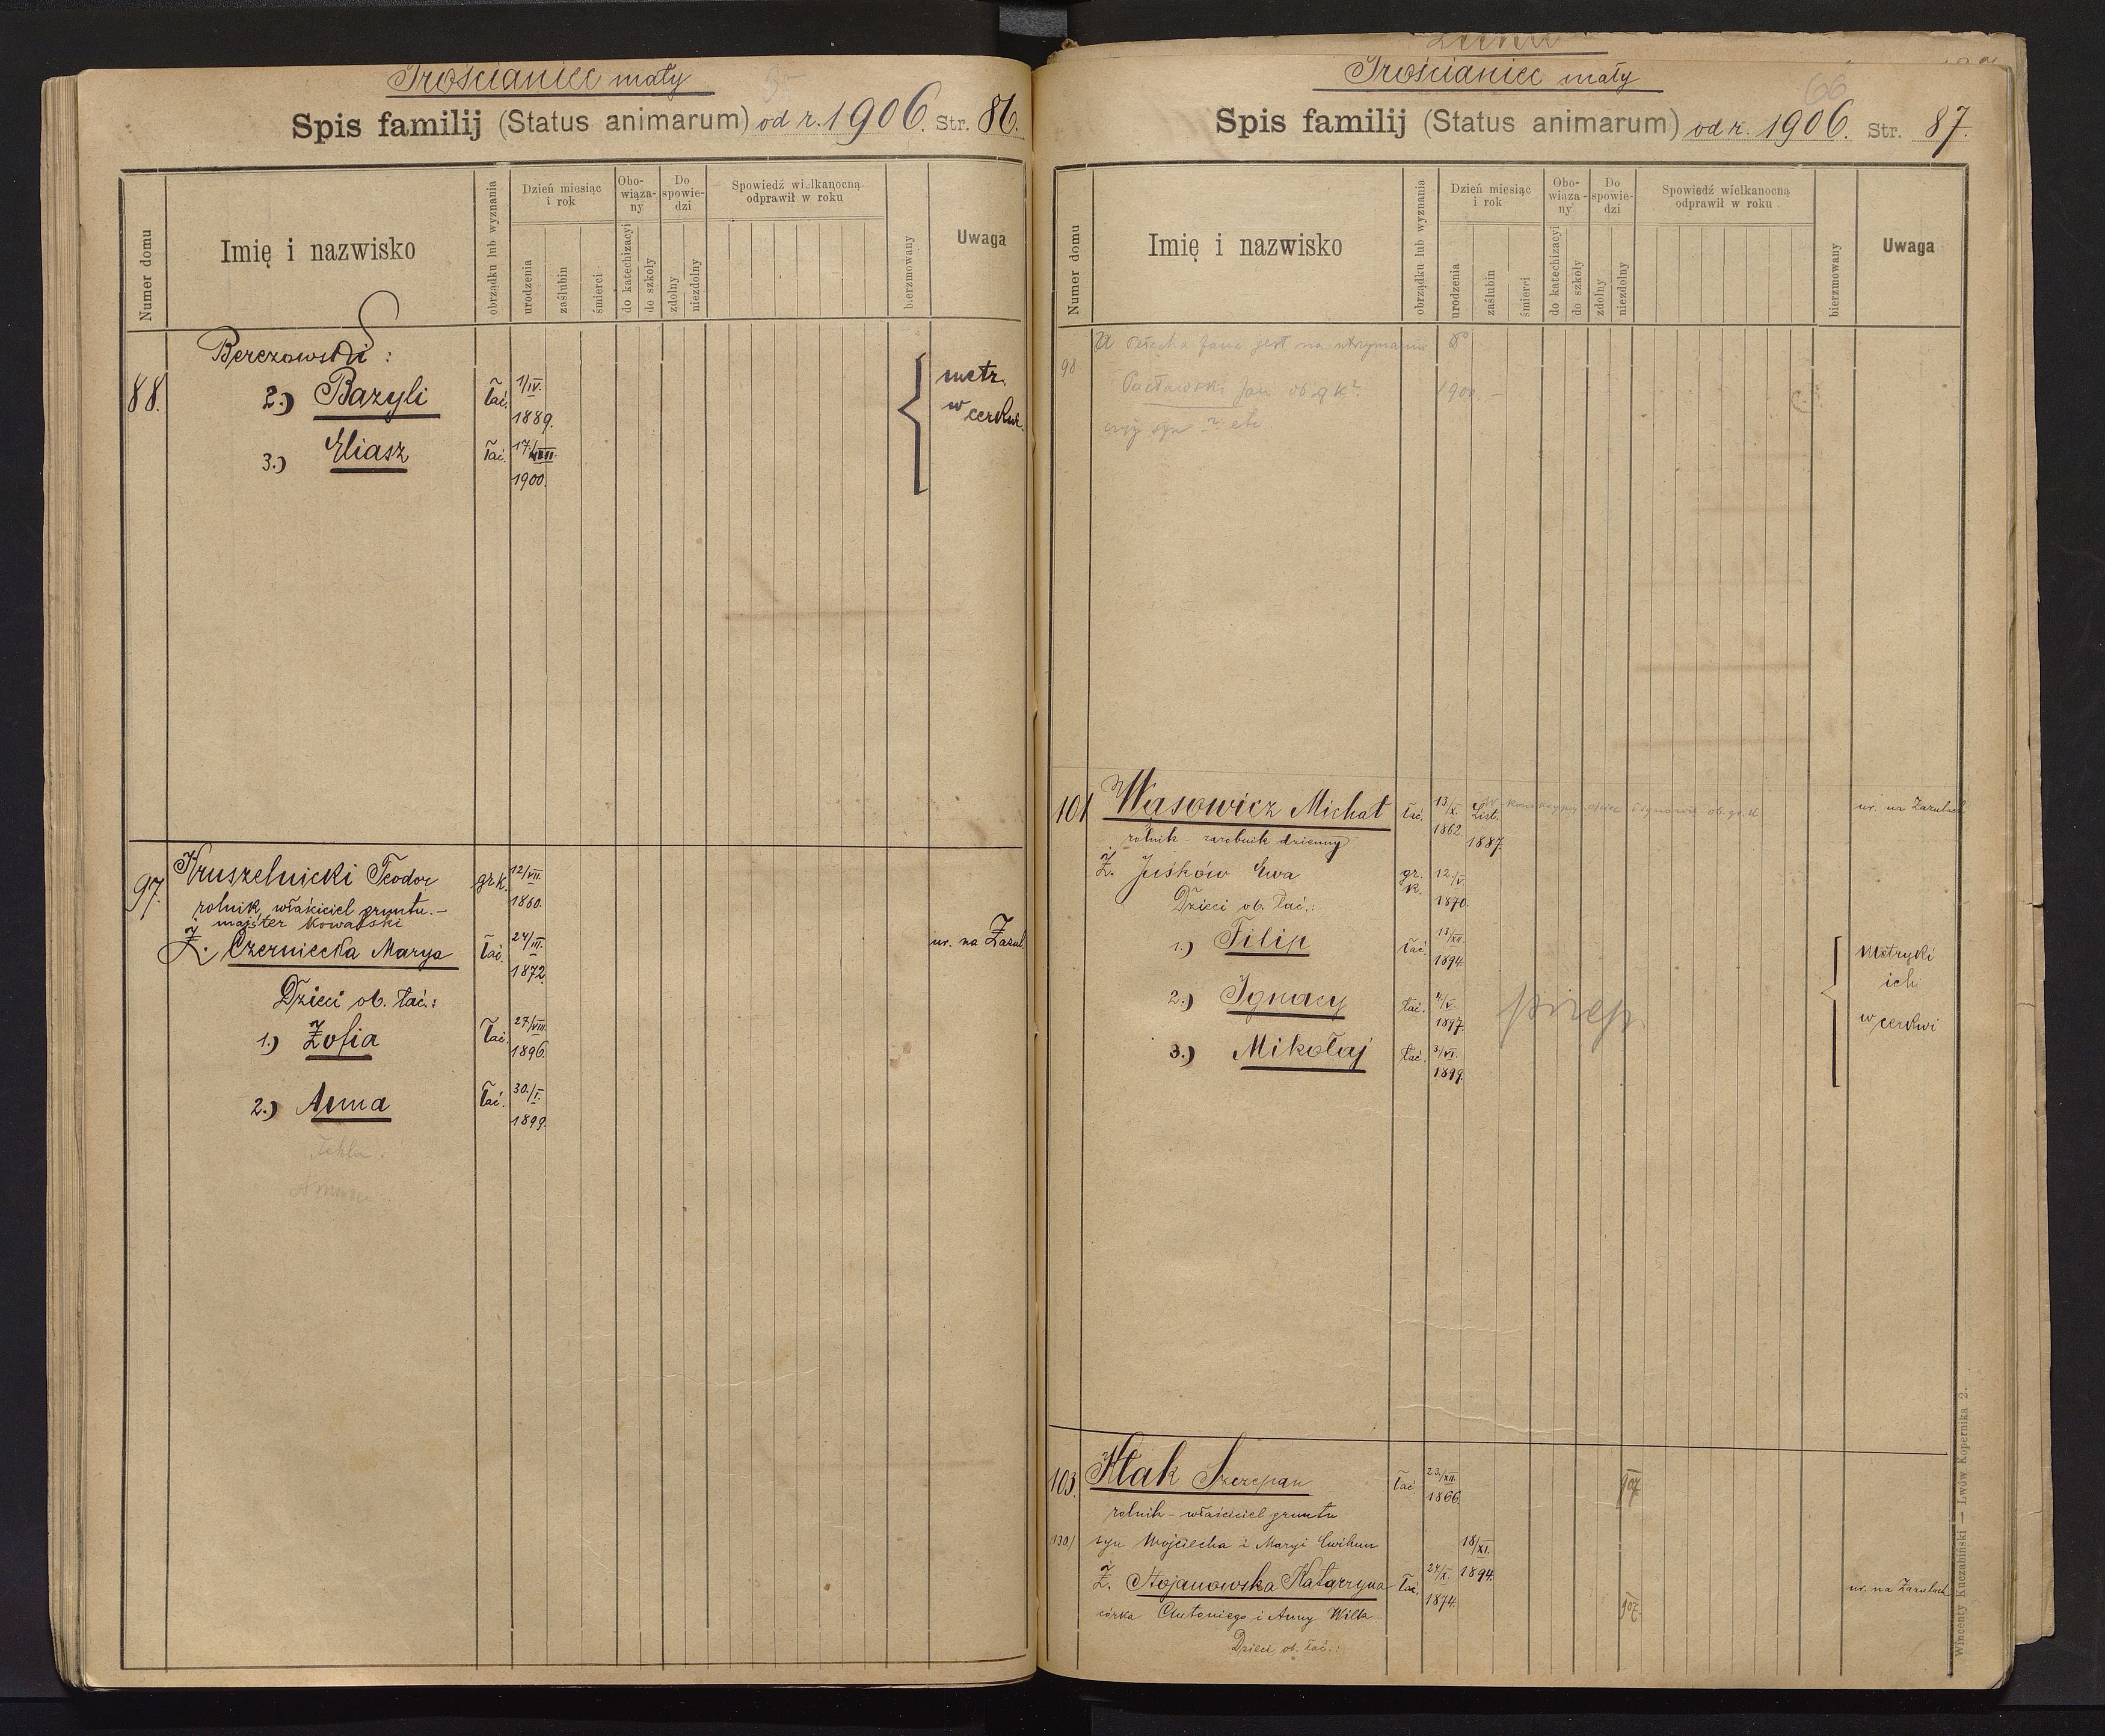 Trościaniec mały
Spis familij (Status animarum) od r. 1906. Str. 86.
Numer domu
Imię i nazwisko
obrządku lub wyznania
Dzień miesiąc i rok
urodzenia
zaślubin
śmierci
Obowiąza-
ny
do katechizacyi
do szkoły
Do spowie-
dzi
zdolny
niezdolny
Spowiedź wielkanocną
odprawił w roku
bierzmowany
Uwaga
Berezowski:
88. 2.) Bazyli łać. 1/IV. 1889. metr.
w cerkwi
3.) Eliasz łać. 17/VIII. 1900.
97. Kruszelnicki Teodor gr k. 12/VII. 1860.
rolnik, właściciel gruntu.–
majster kowalski
Ż. Czerniecka Marya łać. 24/III. 1872. ur. na Zazul.
Dzieci ob. łać.:
1.) Zofia łać. 27/VIII. 1896.
2.) Anna łać. 30./I. 1899.
Tekla
Trościaniec mały
66
Spis familij (Status animarum) od r. 1906. Str. 87.
Numer domu
Imię i nazwisko
obrządku lub wyznania
Dzień miesiąc
i rok
urodzenia
zaślubin
śmierci
Obo-
wiąza-
ny
do katechizacyi
do szkoły
Do
spowie-
dzi
zdolny
niezdolny
Spowiedź wielkanocną
odprawił w roku
bierzmowany
Uwaga
98 jest na utrzymaniu
Jan 1900
101 Wąsowicz Michał łać. 13/X. 1862. List. 1887. ur. na Zazulach
rolnik – zarobnik dzienny
Ż. Juśków Ewa gr. k. 12./V. 1870.
Dzieci ob. łać.:
1.) Filip łać. 13/XII. 1894. metryki
ich
w cerkwi
2.) Ignacy łać. 4/V. 1897.
3.) Mikołaj łać. 3/VI. 1899.
103. Kłak Szczepan łać. 23./XII. 1866. 907
rolnik – właściciel gruntu
syn Wojciecha i Maryi Ćwihun 18/XI. 1894.
Ż. Stojanowska Katarzyna łać. 24/X. 1874. 907. ur. na Zazulach
córka Antoniego i Anny Wilk
Dzieci ob. łać.:
Wincenty Kuczabiński — Lwów Kopernika 2.